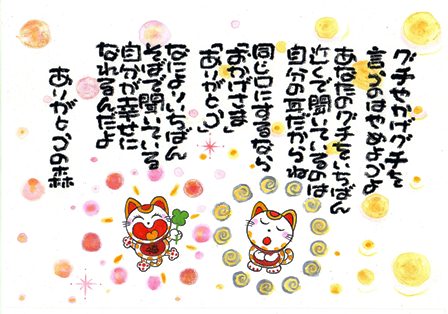 グチやかげグチを
言うのはやめようよ
あなたのグチをいちばん
近くで聞いているのは
自分の耳だからね
同じ口にするなら
「おかげさま」
「ありがとう」
なによりいちばん
そばで聞いている
自分が幸せに
なれるんだよ
ありがとうの森